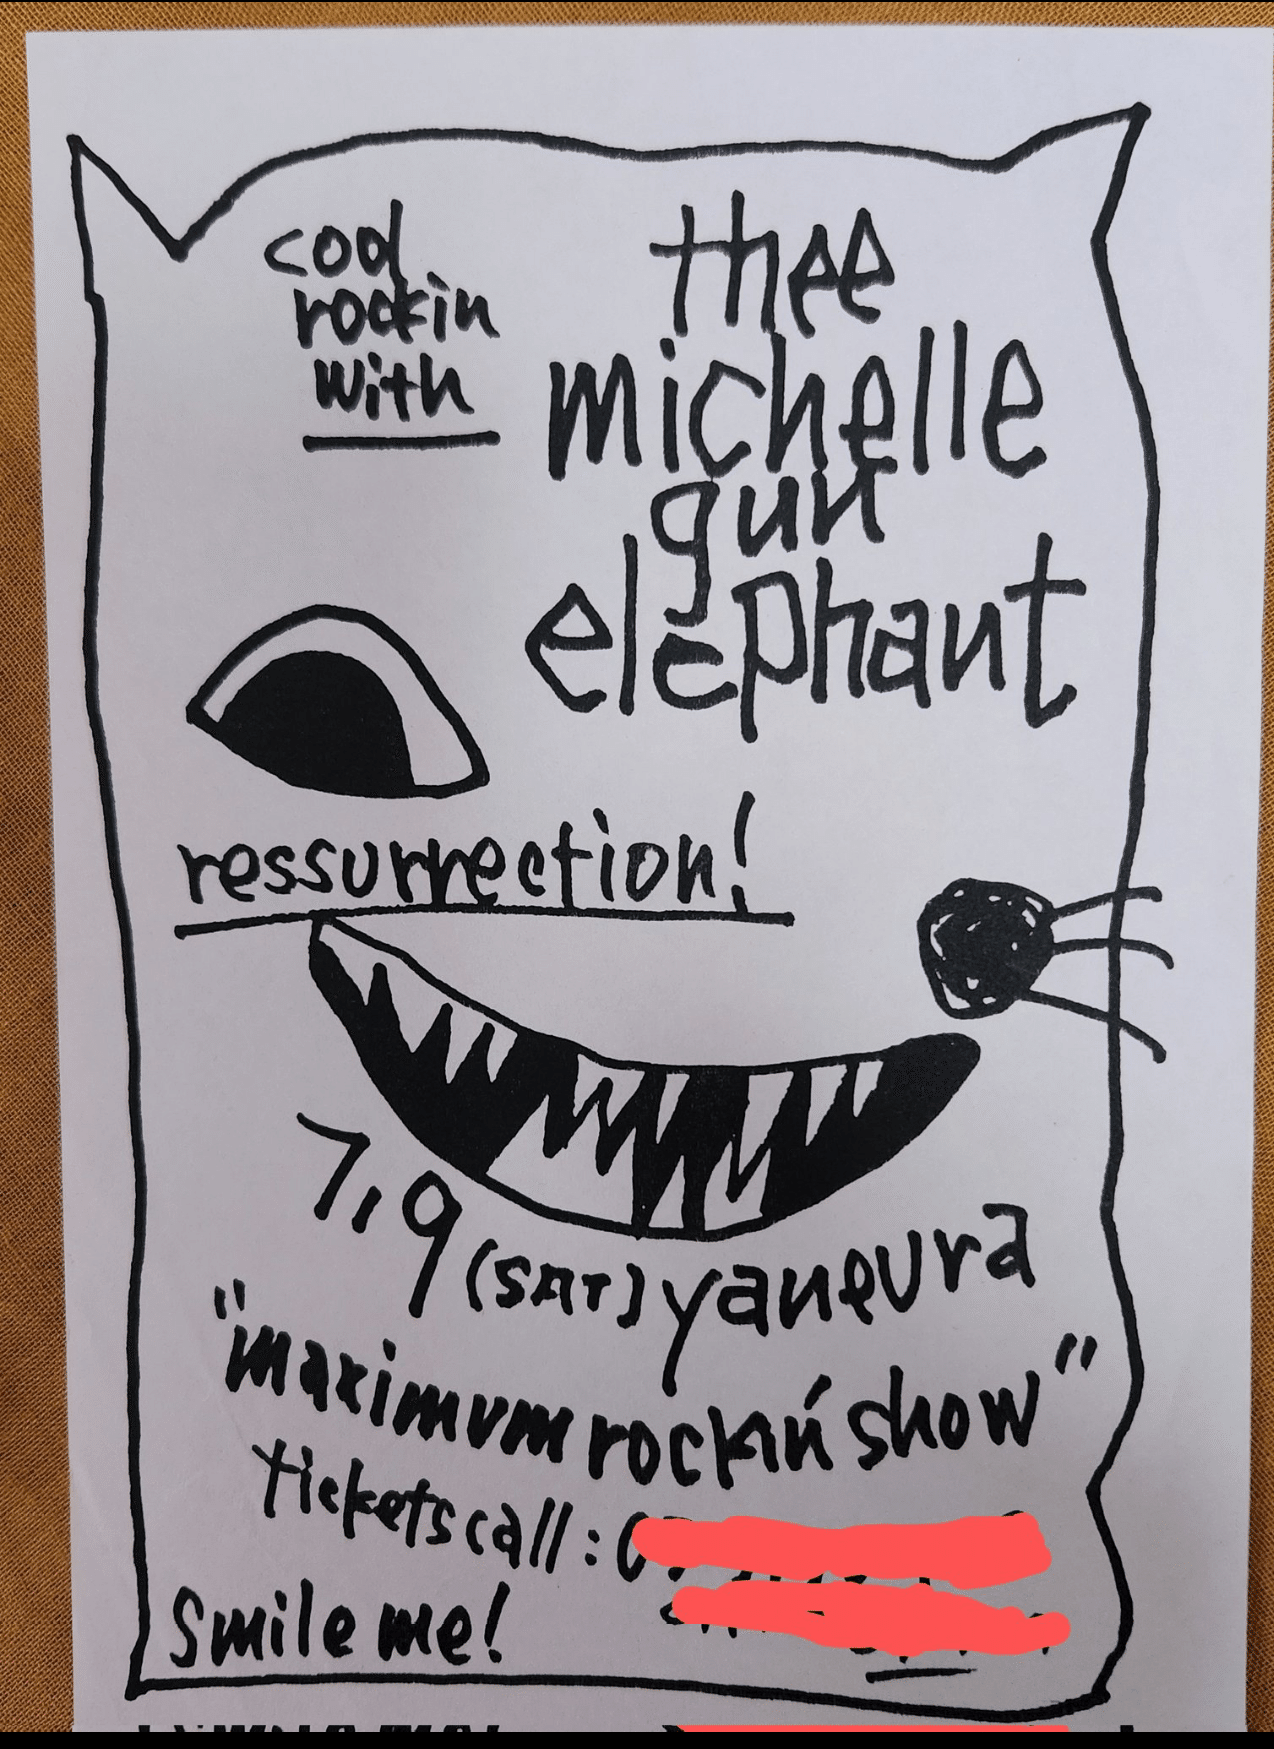 cool
rockin
with
thee
michelle
gun
elephant
ressurrection!
7,9 (SAT) yaneura
"maximum rockin' show"
tickets call: 0
smile me!